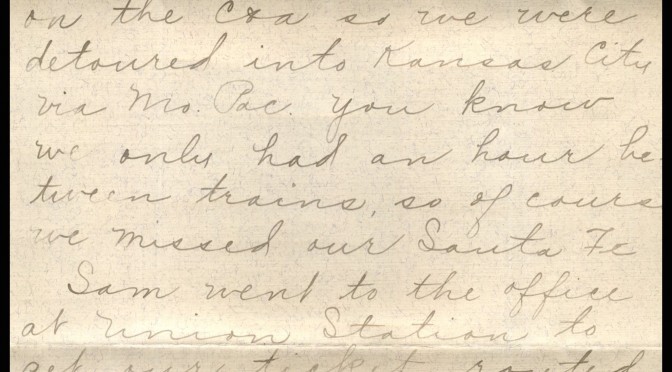 on the C&a so we were
detoured into Kansas City
via Mo. Pac. You know
we only had an hour be
tween trains, so of cours
we missed our Santa Fe
Sam went to the office
at Union Station to
get our ticket routed